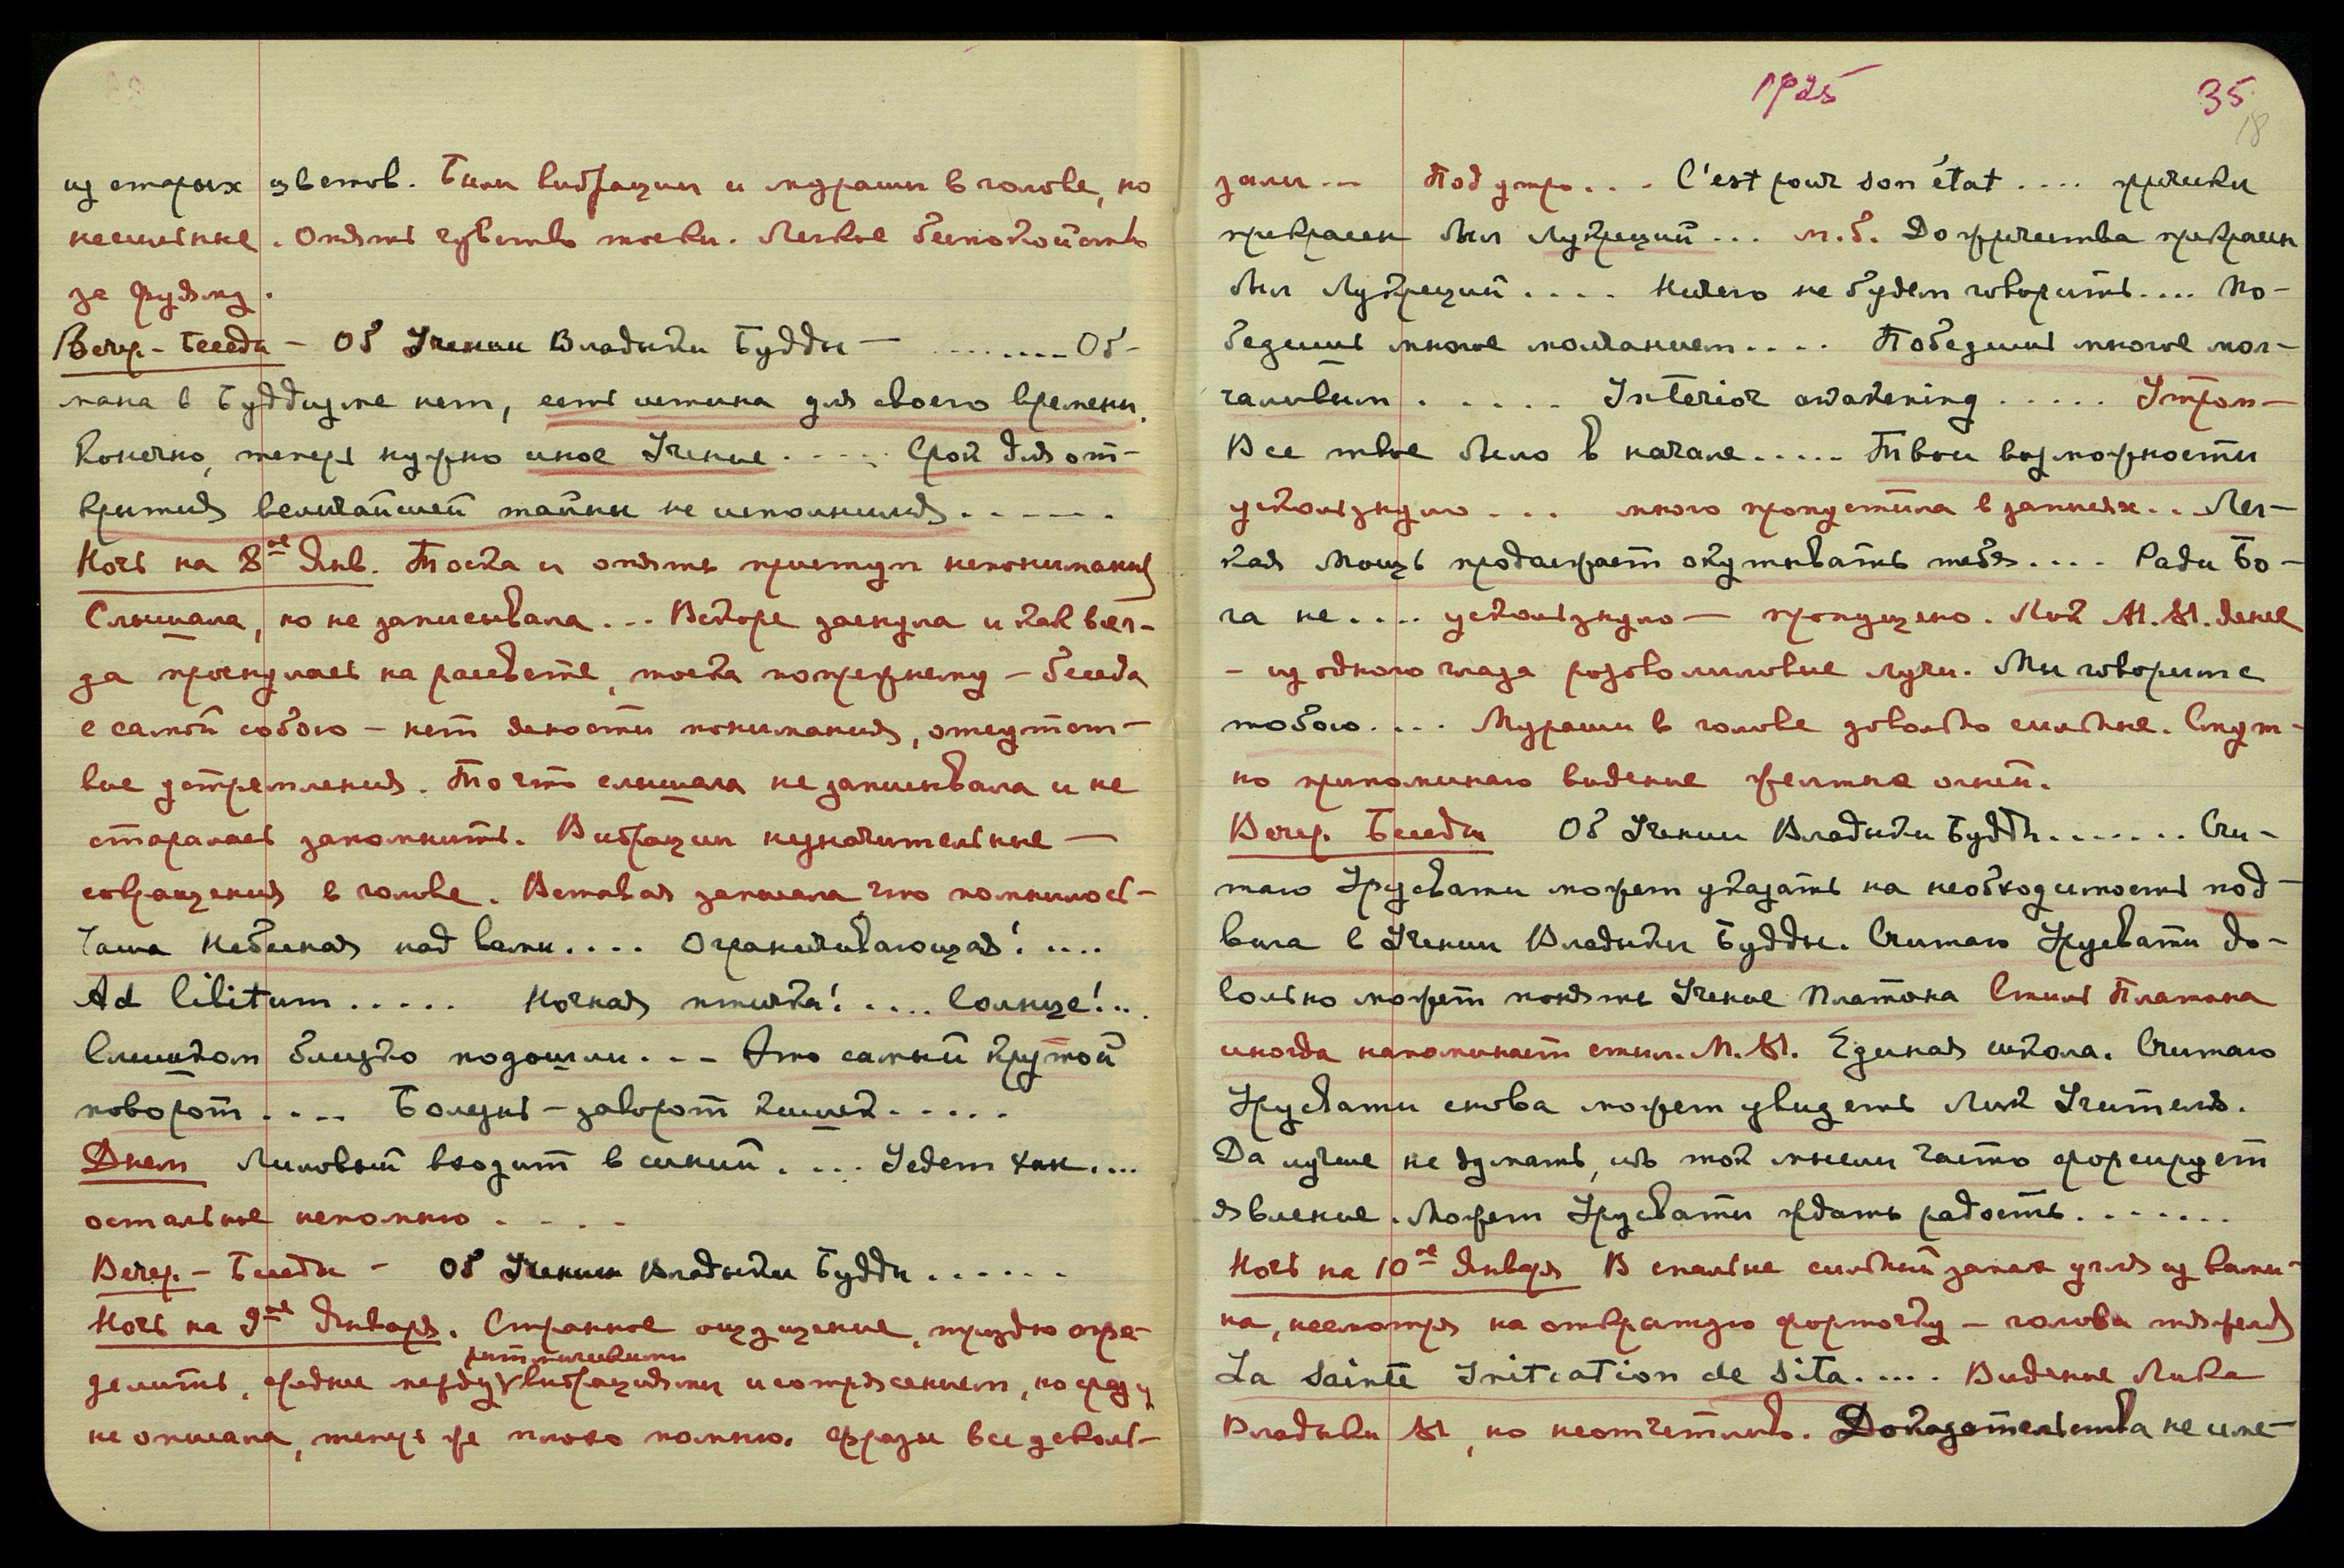 из старых цветов. Были вибрации и мураши в голове, но
несильные. Опять чувство тоски. Легкое беспокойство
за Фуяму.
Вечер – Беседа – Об Учении Владыки Будды — ........ Об-
мана в Буддизме нет, есть истина для своего времени.
Конечно, теперь нужно иное Учение..... Срок для от-
крытия величайшей тайны не исполнился......
Ночь на 8ое Янв. Тоска и опять приступ непонимания
Слышала, но не записывала... Вскоре заснула и как всег-
да проснулась на рассвете, тоска попрежнему – беседа
с самой собою – нет ясности понимания, отсутст-
вие устремления. То что слышала не записывала и не
старалась запомнить. Вибрации незначительные —
сокращения в голове. Вставая записала что помнилось –
Чаша Небесная над вами.... Ограничивающая! ....
Ad libitum..... Ночная птичка! .... Солнце!...
Слишком близко подошли... Это самый крутой
поворот.... Болезнь – заворот кишек.....
Днем Лиловый входит в синий.... Уедет Хан....
остальное непомню....
Вечер. – Беседы – Об Учении Владыки Будды......
Ночь на 9ое Января. Странное ощущение, трудно опре-
ритмическими
делить, среднее между вибрациями и сотрясением, но сразу
не описала, теперь же плохо помню. Фразы все усколь-
1925
35
18
зали... Под утро... C'est pour son état.... 
прекрасен был Лукреций... м.б. До пречества прекрасен
был Лукреций.... Ничего не будем говорить.... По-
бедишь многое молчанием.... Победишь многое мол-
чаливым..... Interior awakening..... Утром –
Все твое было в начале..... Твои возможности
ускользнуло... много пропустила в записях.. Лег-
кая мощь продолжает окутывать тебя.... Ради Бо-
га не.... ускользнуло — пропущено. Лик М.М. яснее
– из одного глаза розоволиловые лучи. Мы говорим с
тобою.... Мураши в голове довольно сильные. Смут-
но припоминаю видение желтые огней.
Вечер. Беседы Об Учении Владыки Будды....... Счи-
таю Урусвати может указать на необходимость под-
вига в Учении Владыки Будды. Считаю Урусвати до-
вольно может понять Учение Платона Стиль Платона
иногда напоминает стил. М.М. Единая школа. Считаю
Урусвати снова может увидеть Лик Учителя.
Да лучше не думать, ибо ток мысли часто форсирует
явление. Может Урусвати ждать радость.......
Ночь на 10ое Января В спальне сильный запах угля из ками-
на, несмотря на открытую форточку – голова тяжелая
La Sainte Initiation de Sita..... Видение Лика
Владыки М, но неотчетливо. Доказательства не име-